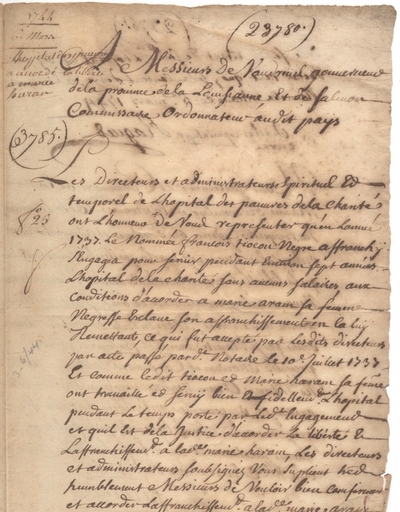 1744
(23780.)
A Messieurs de Vaudreuil gouverneur
de la province de la Louisianne, Et de Salmon
Commissaire Ordonnateur audit pays
(3785.)
Les Directeurs et administrateurs Spirituel Et
temporel de Lhopital des pauvres de la Charité
ont Lhonneur de Vous representer qu'en Lannée
1737. Le Nommé francois tiocou Negre affranchy
S'engagea pour servir pendant Environ Sept années
Lhopital de la charité sans aucuns salaires aux
Conditions d'acorder a marie aram sa femme
Negresse Esclave son affranchissement en la luy
Remettant, ce qui fut accepté par Lesdits directeurs
par acte passé pard.t Notaire le 10.e Juillet 1737
Et comme ledit tiocou et Marie haram sa féme
ont travaillé et servy bien et fidellem.t L'hopital
pendant Le temps porté par led.t Engagement
et qu'il Est de la Justice d'acorder la liberté et
Laffranchissem.t a lad.e marie haram, Les directeurs
et administrateurs soubsignez Vous suplient tres
humblement Messieurs de Vouloir bien confirmer
et accorder Laffranchissem.t a lad.e marie aram